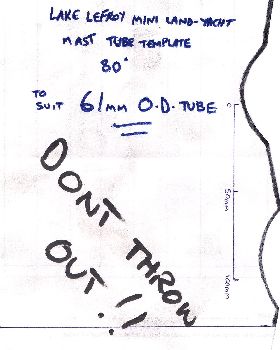 LAKE LEFROY MINI LAND-YACHT
MAST TUBE TEMPLATE
80°
TO SUIT 61mm O.D. TUBE
DONT THROW
OUT!!
0
50mm
100mm